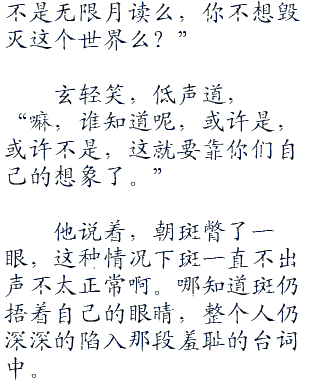 不是无限月读么，你不想毁
灭这个世界么？”
玄轻笑，低声道，
“嘛，谁知道呢，或许是，
或许不是，这就要靠你们自
己的想象了。”
他说着，朝斑瞥了一
眼，这种情况下斑一直不出
声不太正常啊。哪知道斑仍
捂着自己的眼睛，整个人仍
深深的陷入那段羞耻的台词
中。